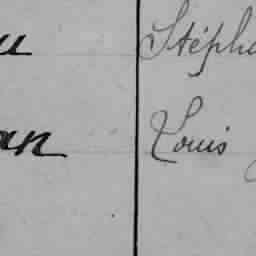 u Stépha
an Louis